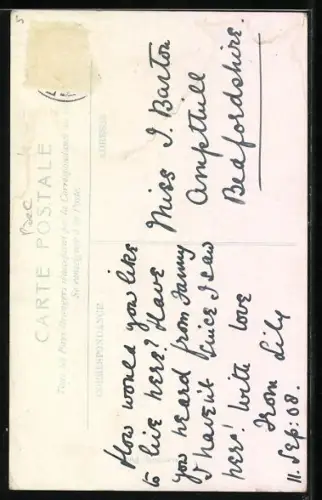 CARTE POSTALE
Tous les Pays étrangers n'acceptent pas la Correspondance au
Se renseigner à la Poste.
CORRESPONDANCE
ADRESSE
How would you like
to live here? Have
you heard from Fanny
I haven't since I saw
hers! With love
from Lily
11. Sep: 08.
Miss I. Barton
Ampthill
Bedfordshire.